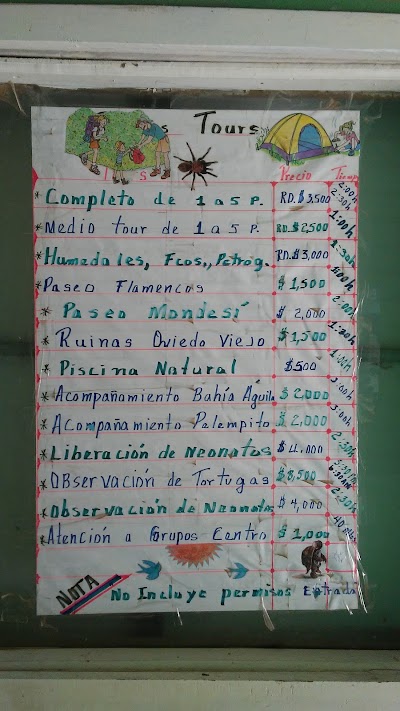 Tours
Precio Tiempo
* Completo de 1 a 5 P. RD.$3,500 2:00h 2:30h
* Medio tour de 1 a 5 P. RD.$2,500 1:00h
* Humedales, Fcos., Petróg. RD.$3,000 1:30h
* Paseo Flamencos $1,500
* Paseo Mondesí $2,000 2:00h
* Ruinas Oviedo Viejo $1,500 1:30h
* Piscina Natural $500 1:00h
* Acompañamiento Bahía Águila $2,000 3:00h
* Acompañamiento Palempito $2,000 3:00h
* Liberación de Neonatos $4,000 2:30h
* Observación de Tortugas $8,500
* Observación de Neonatos $4,000 2:30h
* Atención a Grupos Centro $1,000 40
NOTA No Incluye permisos Entrada